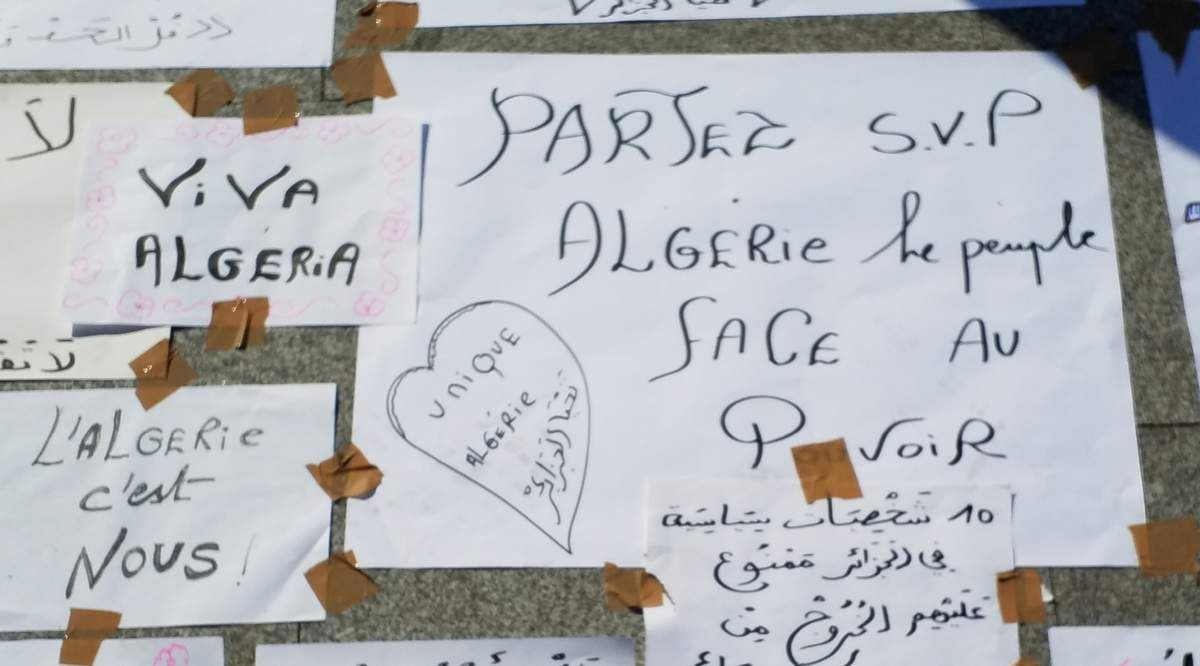 لا
VIVA
ALGÉRIA
PARTEZ S.V.P
ALGÉRIE le peuple
FACE AU
POUVOIR
UNIQUE
ALGÉRIE
تحيا الجزائر
L'ALGÉRIE
c'est
NOUS!
10 شخصيات سياسية
في الجزائر ممنوع
عليهم الخروج من